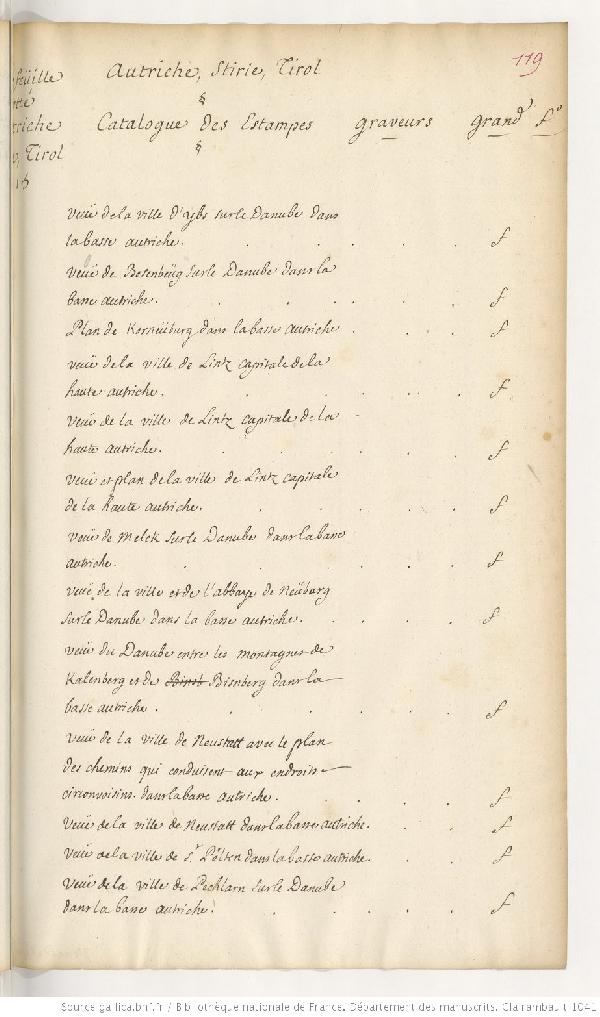 119
Autriche, Stirie, Tirol
Catalogue des Estampes graveurs grand.r f.o
feüille
triche
Tirol
veüe de la ville d'ybs sur le Danube dans
la basse autriche. f
veüe de Besenbeüg sur le Danube dans la
basse autriche. f
Plan de Korneüburg dans la basse autriche. f
veüe de la ville de Lintz capitale de la
haute autriche. f
veüe de la ville de Lintz capitale de la
haute autriche. f
veüe et plan de la ville de Lintz capitale
de la haute autriche. f
veüe de Melck sur le Danube dans la basse
autriche. f
veüe de la ville et de l'abbaye de Neüburg
sur le Danube dans la basse autriche. f
veüe du Danube entre les montagnes de
Kalenberg et de Bisenberg dans la
basse autriche. f
veüe de la ville de Neustatt avec le plan
des chemins qui conduisent aux endroits
circonvoisins dans la basse autriche. f
veüe de la ville de Neustatt dans la basse autriche. f
veüe de la ville de St. Pölten dans la basse autriche. f
veüe de la ville de Pechlarn sur le Danube
dans la basse autriche. f
Source gallica.bnf.fr / Bibliothèque nationale de France. Département des manuscrits. Clairambault 1041